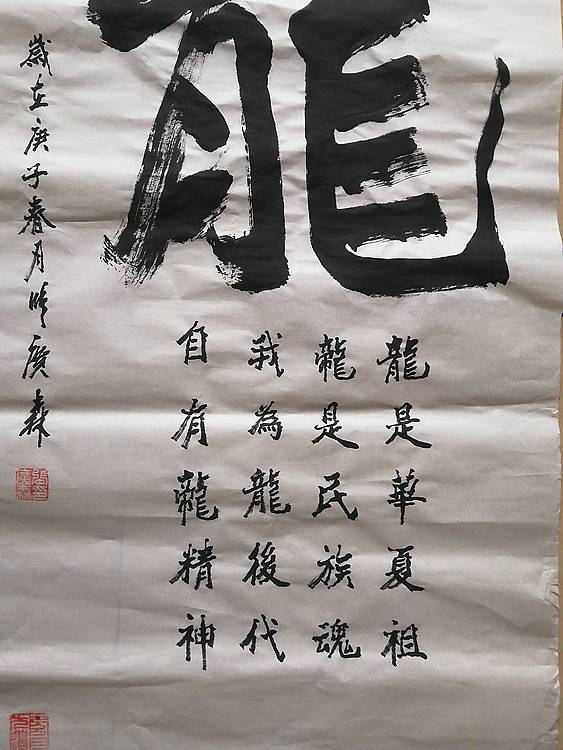 龍
龍是華夏祖
龍是民族魂
我為龍後代
自有龍精神
歲在庚子春月